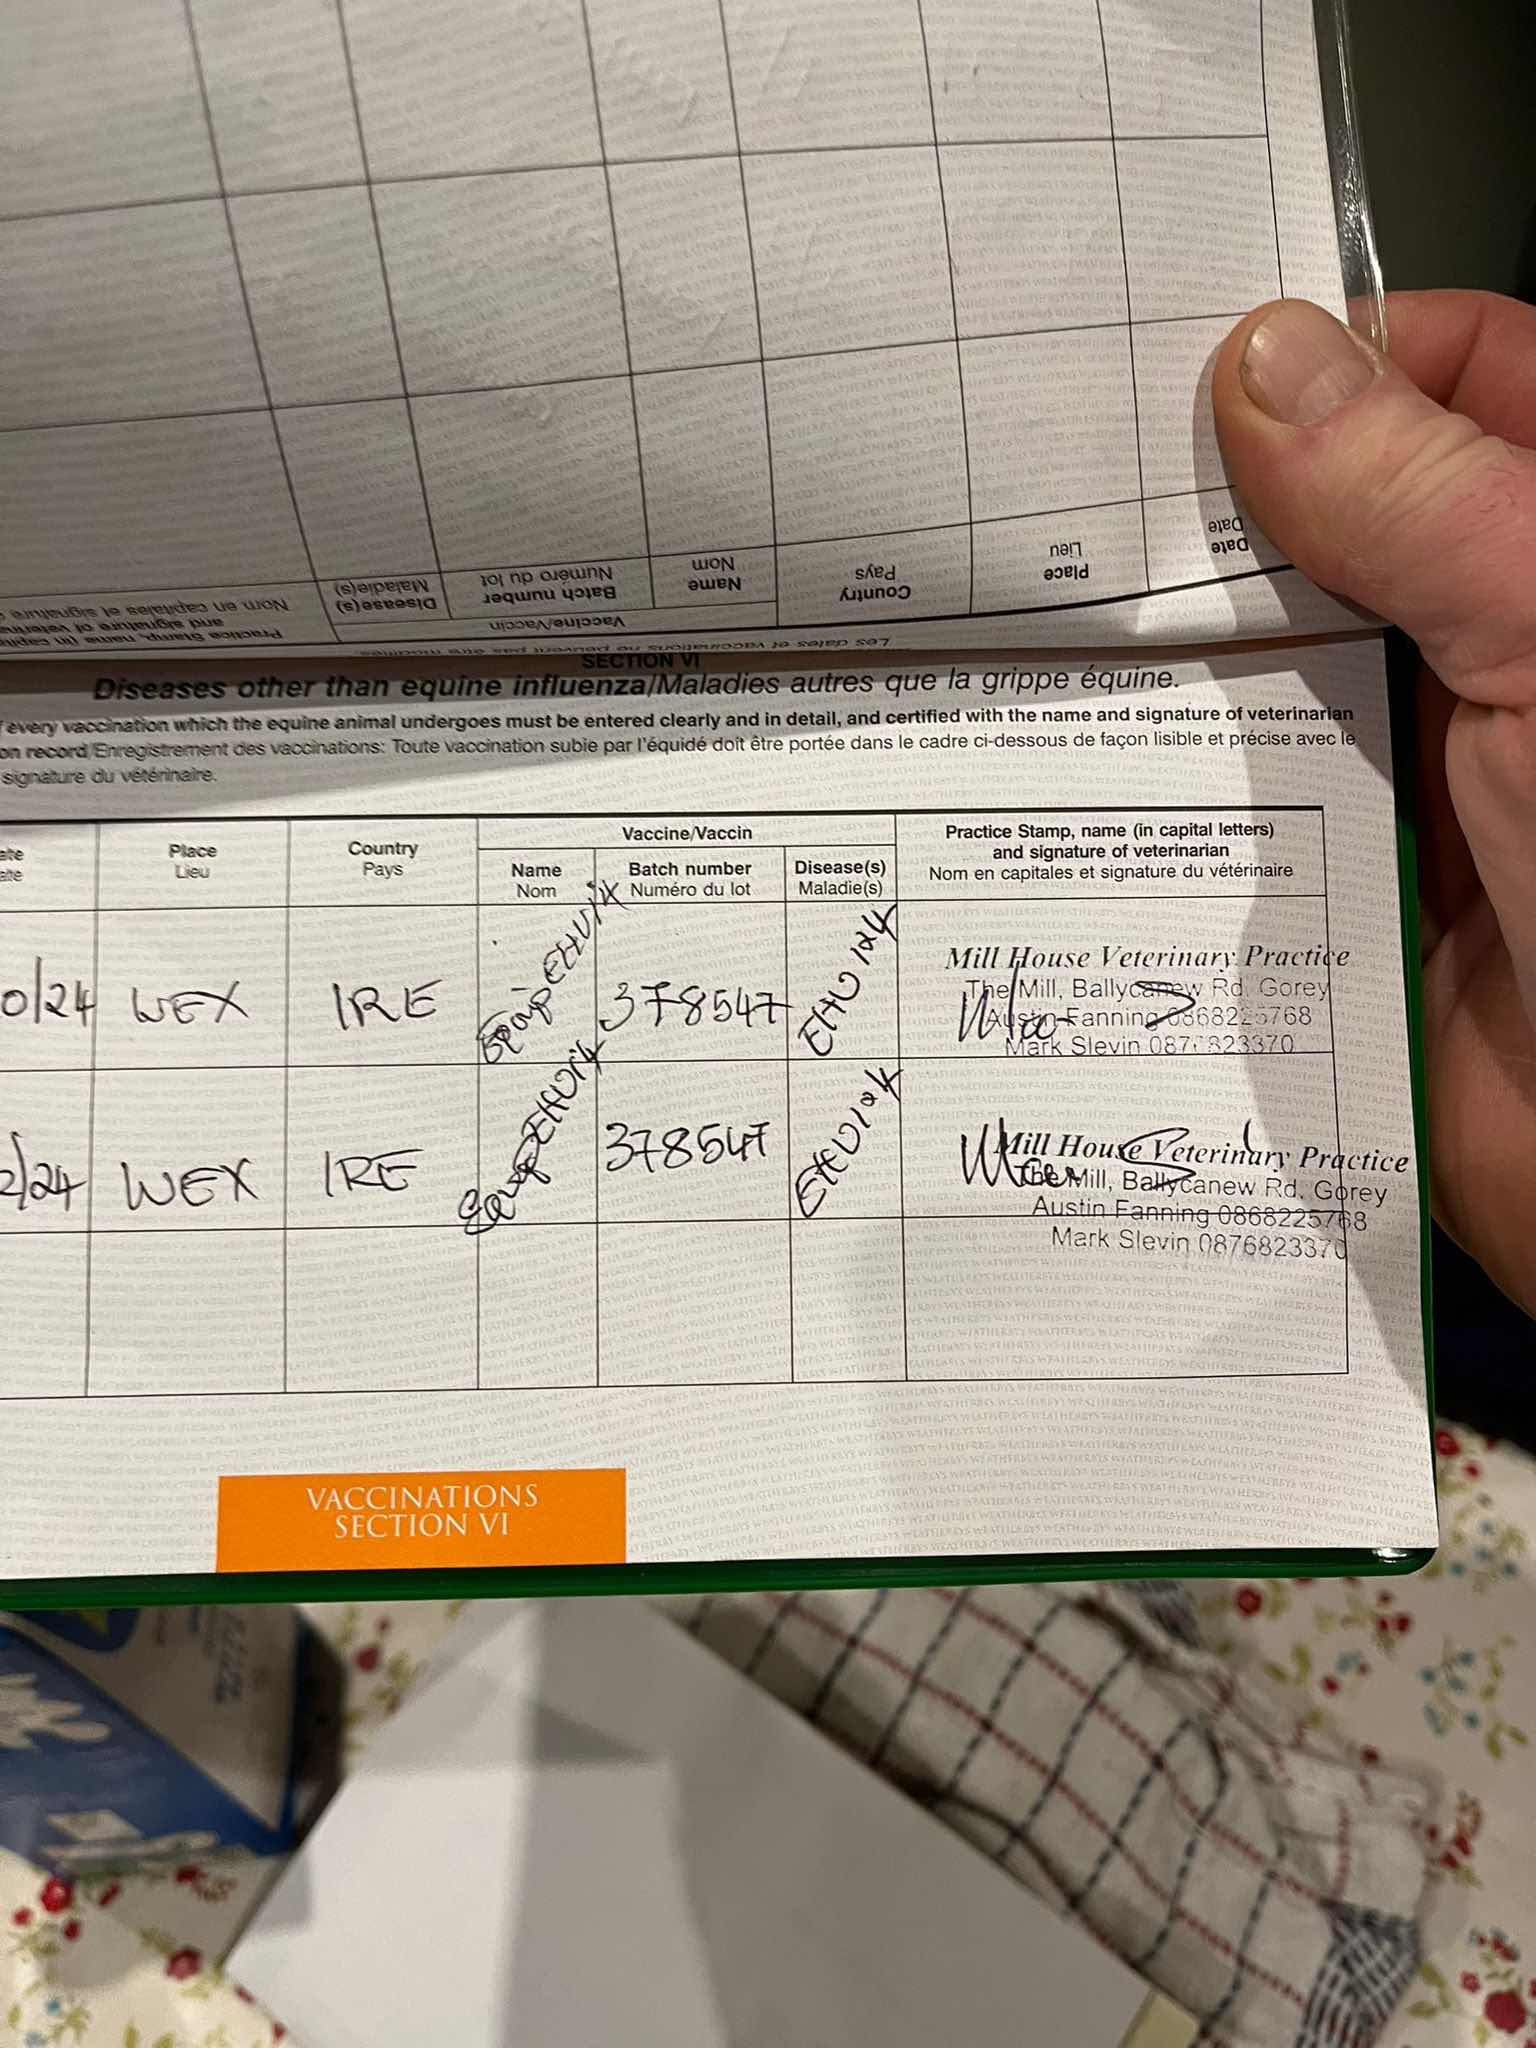 Practice Stamp, name (in capital
and signature of veterina
Nom en capitales et signature
Vaccine/Vaccin
Disease(s)
Maladie(s)
Batch number
Numéro du lot
Name
Nom
Country
Pays
Place
Lieu
Date
Date
Les dates et vaccinations ne peuvent pas être modifiées.
SECTION VI
Diseases other than equine influenza/Maladies autres que la grippe équine.
f every vaccination which the equine animal undergoes must be entered clearly and in detail, and certified with the name and signature of veterinarian
on record/Enregistrement des vaccinations: Toute vaccination subie par l'équidé doit être portée dans le cadre ci-dessous de façon lisible et précise avec le
signature du vétérinaire.
ate
ate
Place
Lieu
Country
Pays
Vaccine/Vaccin
Name
Nom
Batch number
Numéro du lot
Disease(s)
Maladie(s)
Practice Stamp, name (in capital letters)
and signature of veterinarian
Nom en capitales et signature du vétérinaire
0/24 WEX IRE 378547 EHV 1&4
Mill House Veterinary Practice
The Mill, Ballycanew Rd. Gorey
Austin Fanning 0868225768
Mark Slevin 0876823370
2/24 WEX IRE 378547 EHV 1&4
Mill House Veterinary Practice
The Mill, Ballycanew Rd. Gorey
Austin Fanning 0868225768
Mark Slevin 0876823370
VACCINATIONS
SECTION VI